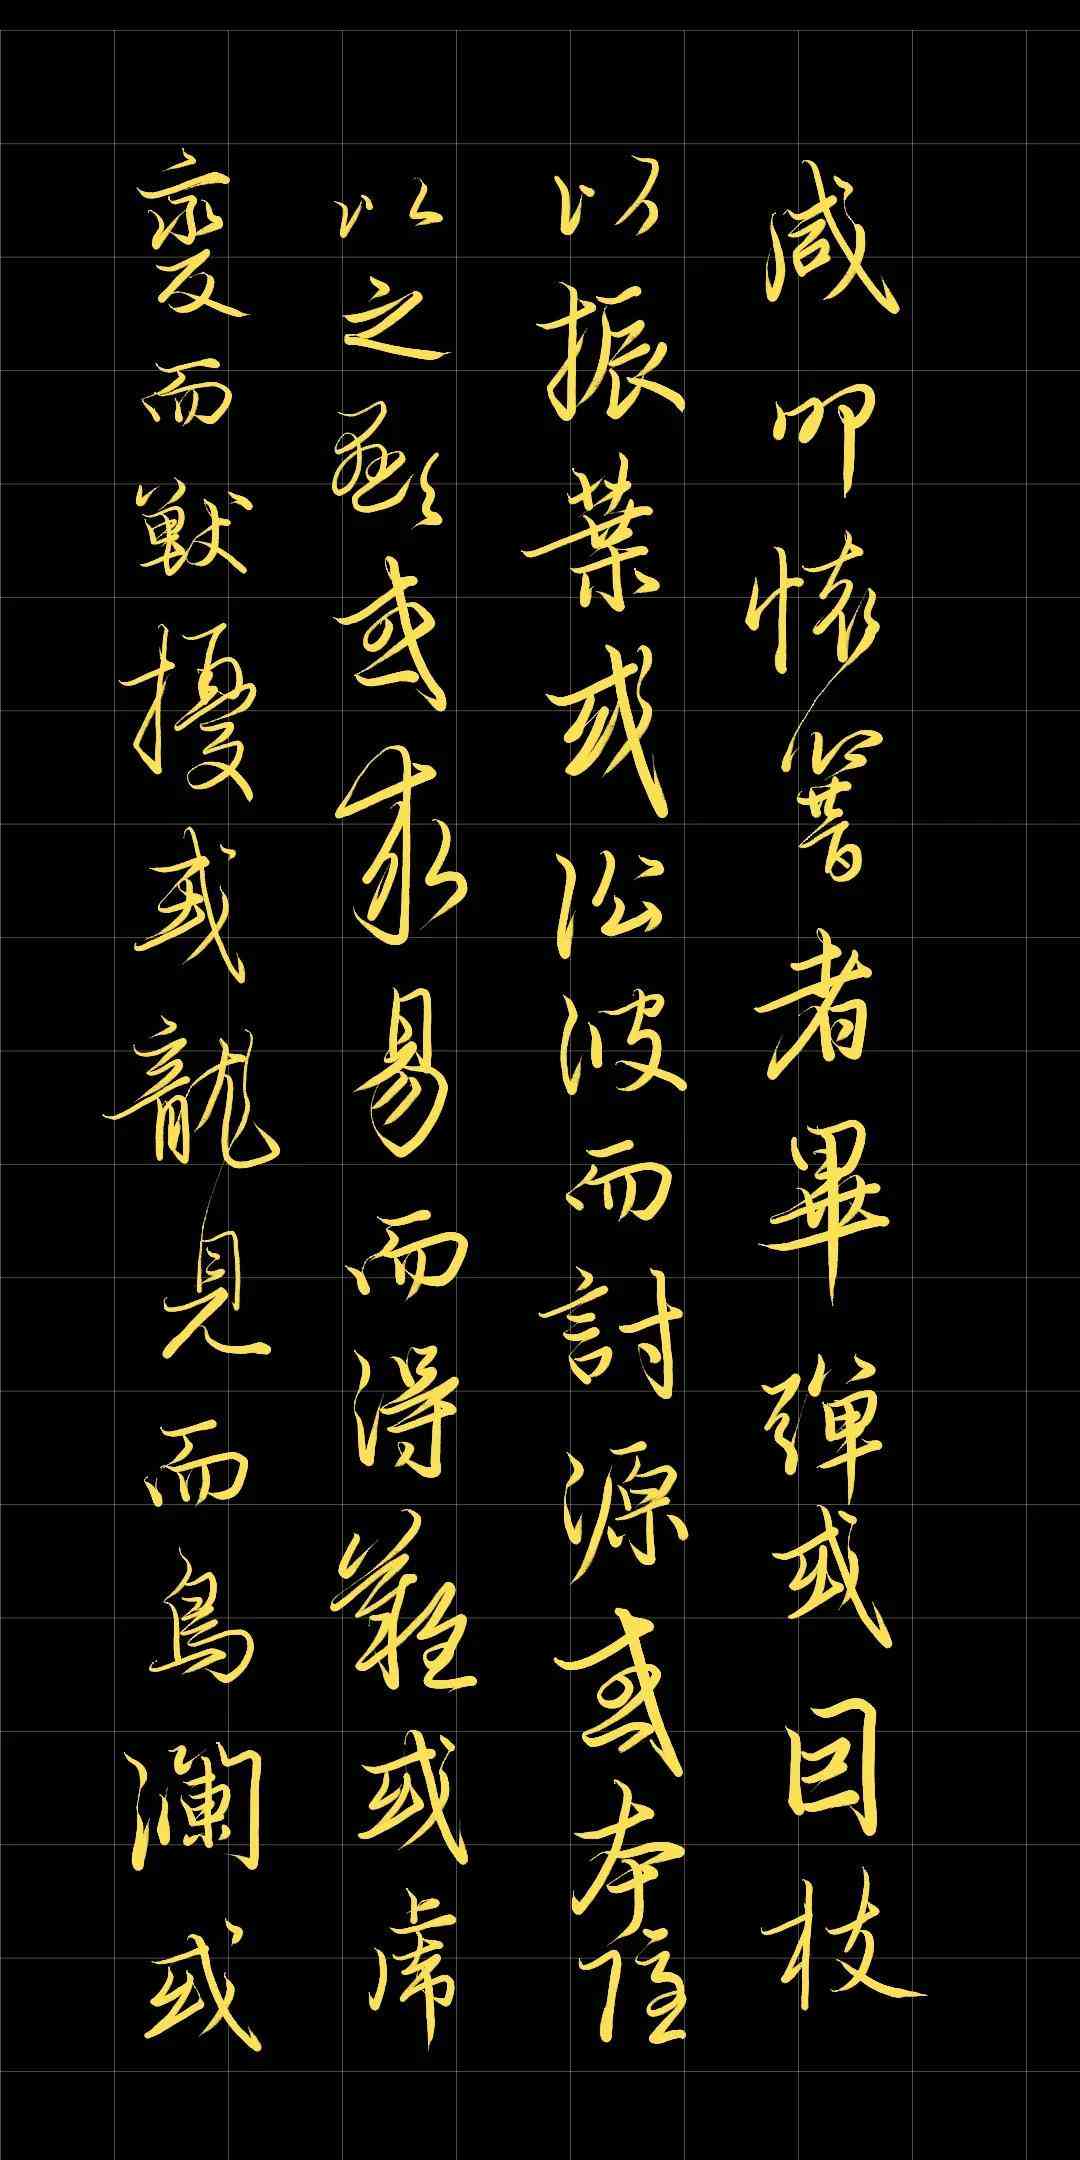 咸叩懷響者畢彈或因枝
以振葉或沿波而討源或本隱
以之顯或求易而得難或虎
變而獸擾或龍見而鳥瀾或